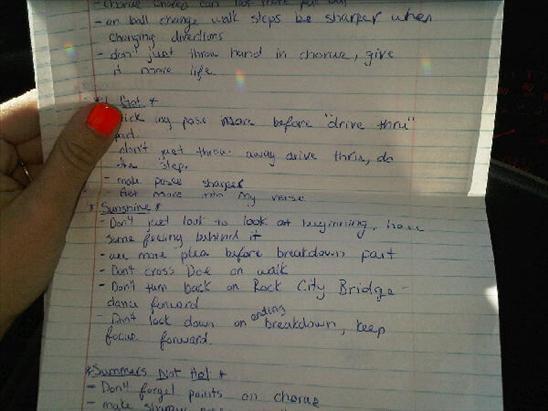 - on ball change walk steps be sharper when
changing directions
- don't just throw hand in chorus, give
it more life
Hot *
my pose more before "drive thru"
part
- don't just throw away drive thru, do
the step.
- make poses sharper
more into my verse
* Sunshine *
- Don't just look to look at beginning, have
some feeling behind it
- use more plea before breakdown part
- Don't cross Doe on walk
- Don't turn back on Rock City Bridge -
dance forward
- Don't look down on ending breakdown, keep
focus forward.
* Summers Not Hot *
- Don't forget points on chorus
- make sharper